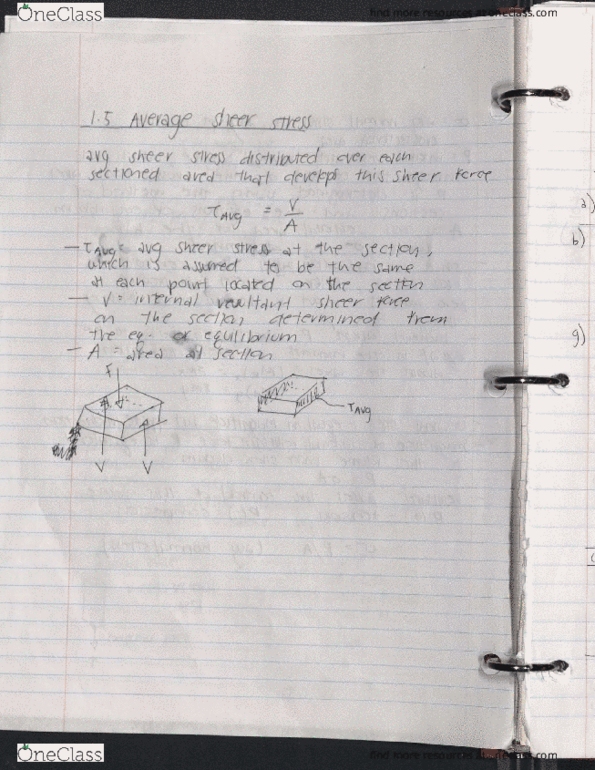 OneClass
find more resources at oneclass.com
1.5 Average sheer stress
avg sheer stress distributed over each
sectioned area that develops this sheer force
τAvg = V
A
- τAvg = avg sheer stress at the section,
which is assumed to be the same
at each point located on the section
- V = internal resultant sheer force
on the section determined from
the eq. of equilibrium
- A = area at section
F
A
τAvg
V V
a)
b)
g)
OneClass
find more resources at oneclass.com